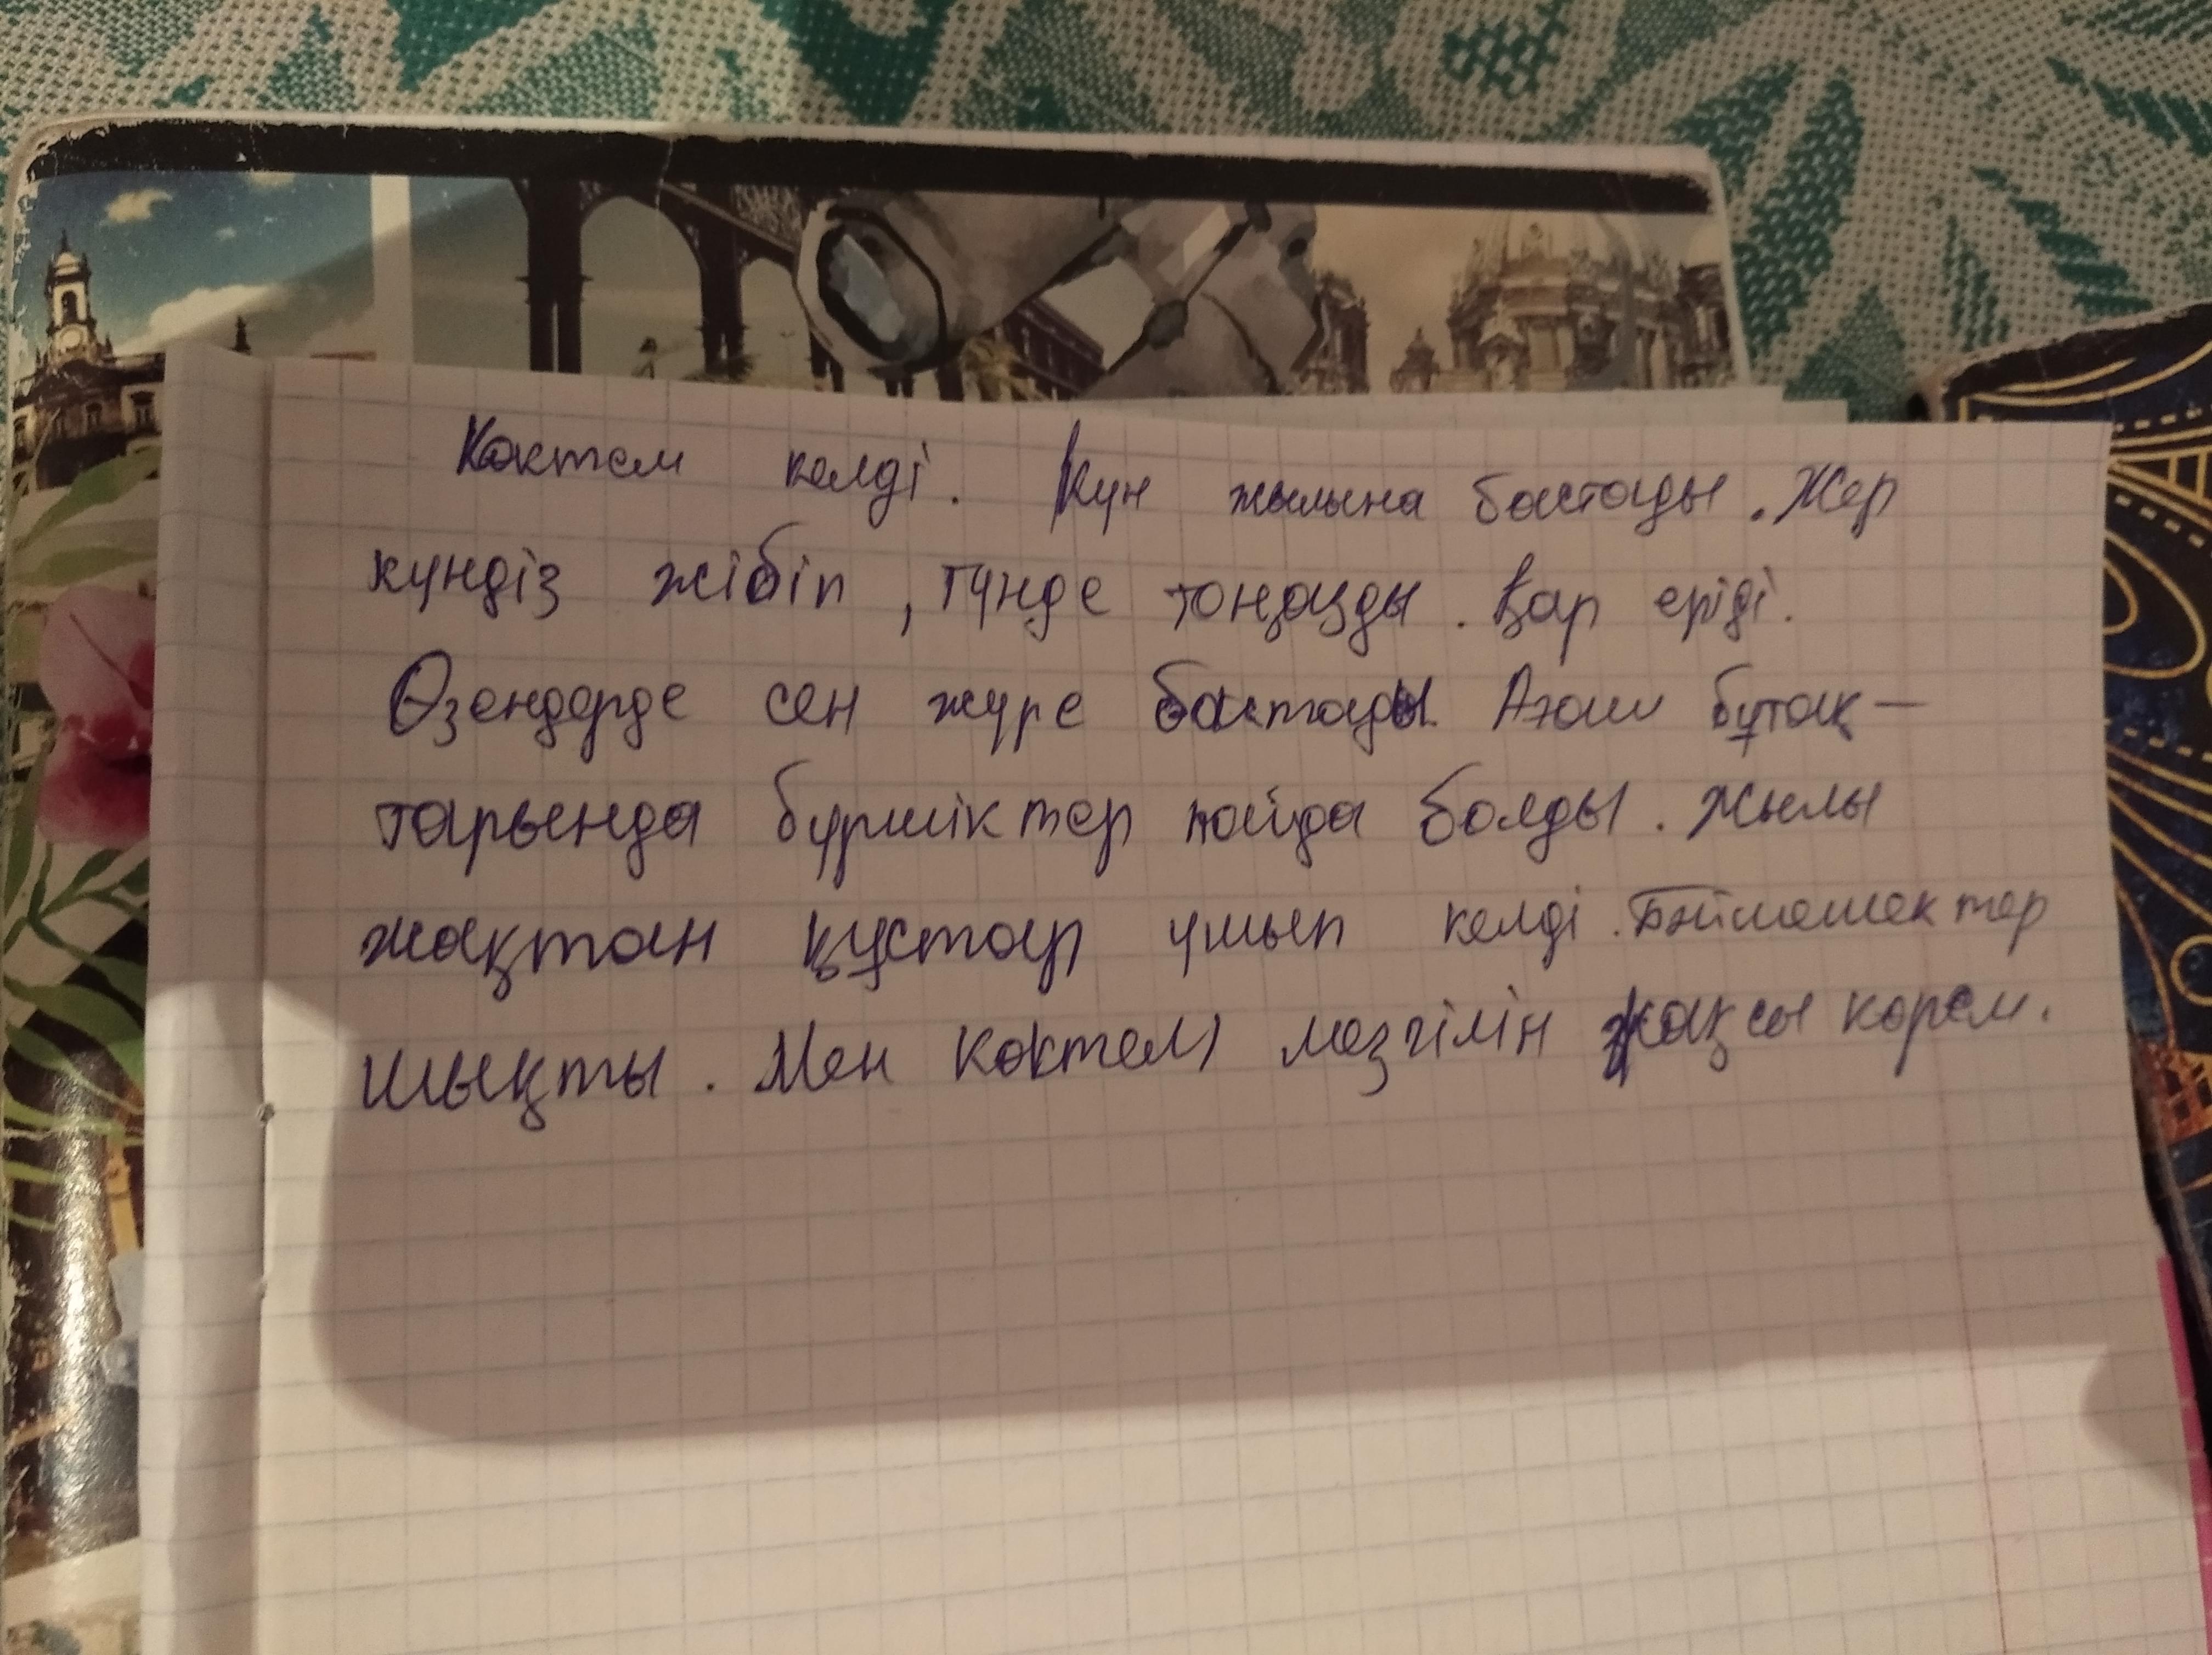 Көктем келді. Күн жылына бастады. Жер
күндіз жібіп, түнде тоңазды. Қар еріді.
Өзендерде сең жүре бастады. Ағаш бұтақ-
тарында бүршіктер пайда болды. Жылы
жақтан құстар ұшып келді. Бәйшешектер
шықты. Мен көктем мезгілін жақсы көрем.